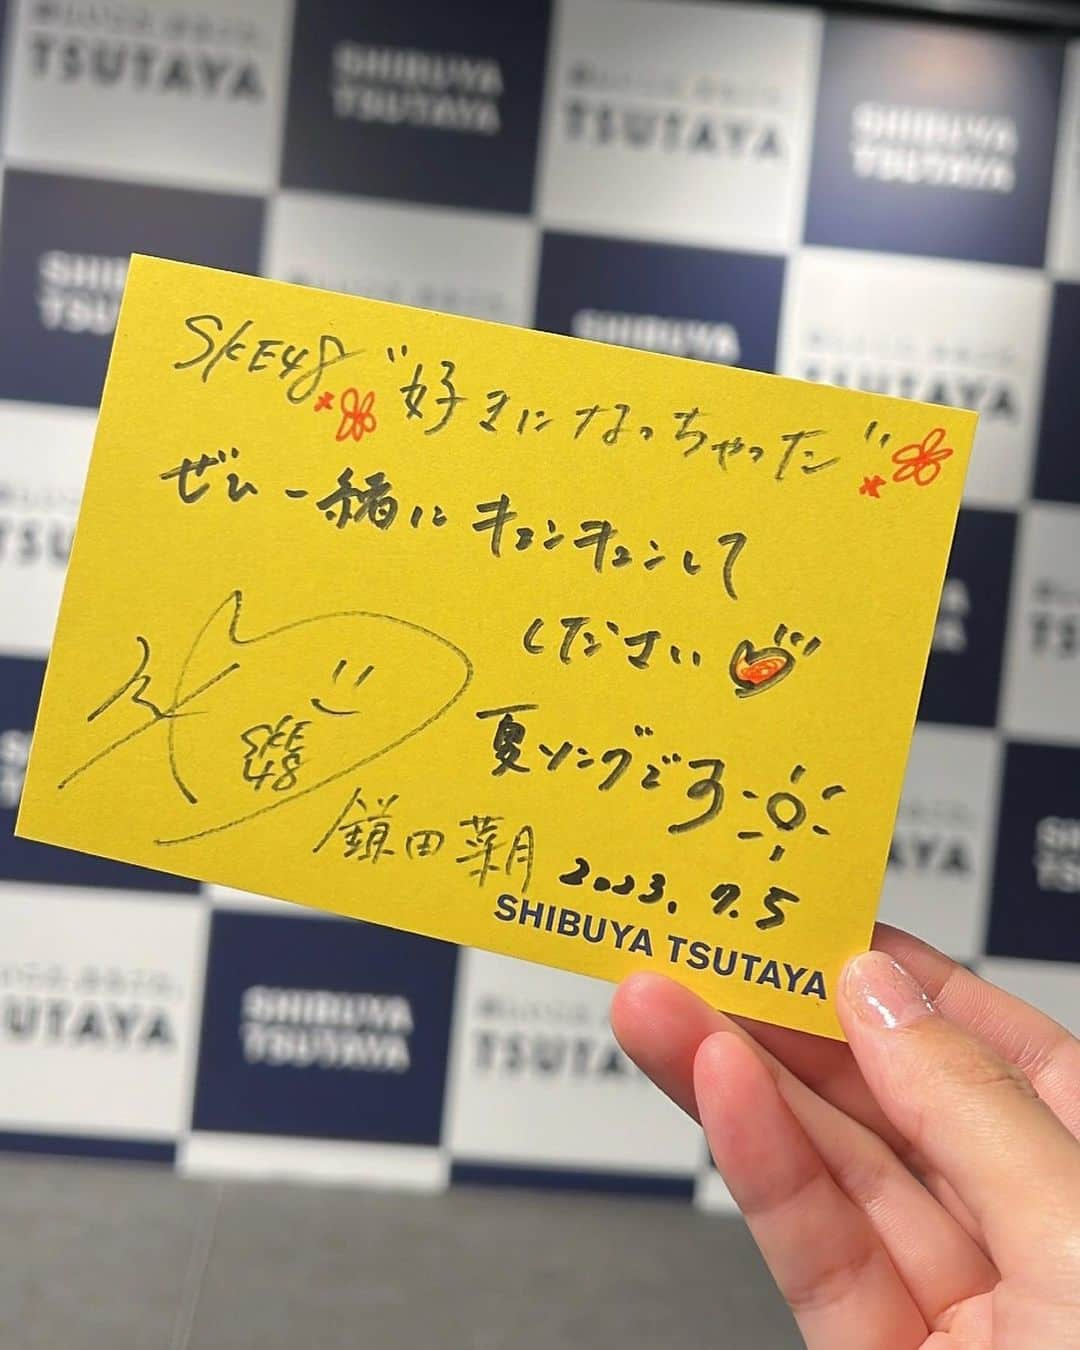 TSUTAYA
SHIBUYA
TSUTAYA
TSUTAYA
SHIBUYA
TSUTAYA
SKE48 "好きになっちゃった"
ぜひ一緒にキュンキュンして
ください
夏ソングです
SKE
48
鎌田菜月 2023.7.5
SHIBUYA TSUTAYA
SHIBUYA
TSUTAYA